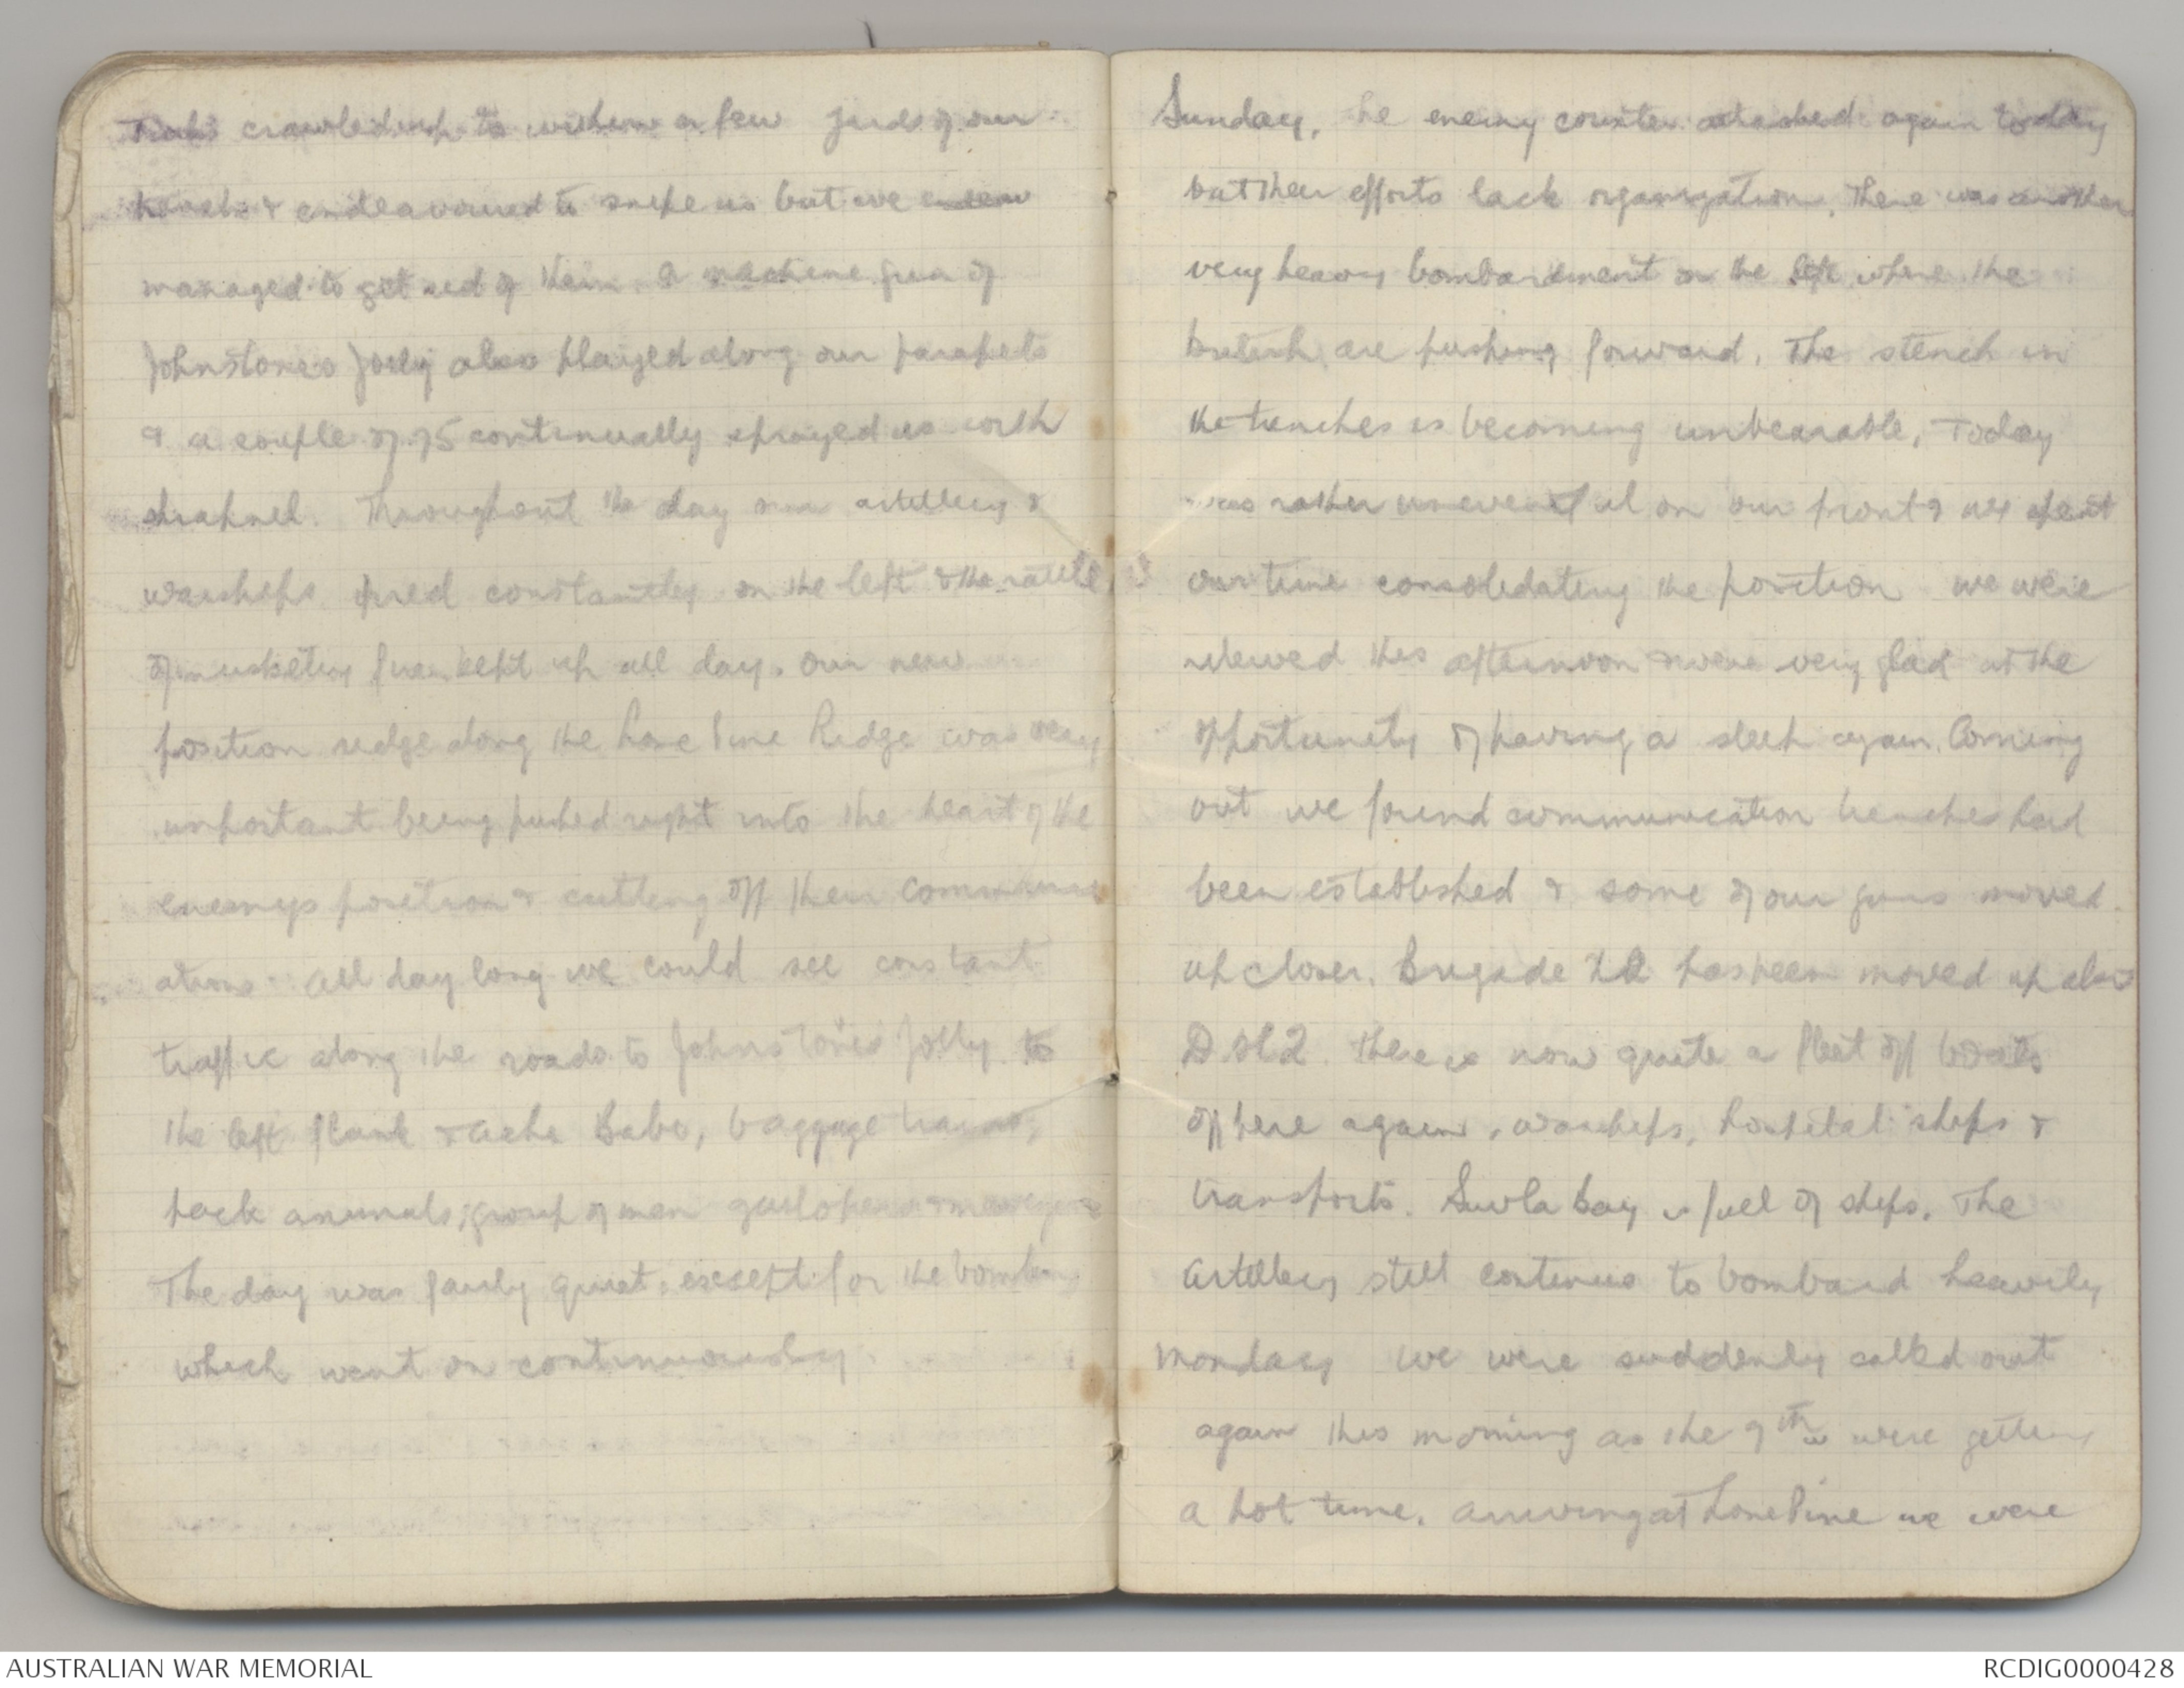 Turks crawled up to within a few yards of our
trench & endeavoured to snipe us but we
managed to get rid of them. A machine gun of
Johnstones Jolly also played along our parapets
& a couple of 75 continually sprayed us with
shrapnel. Throughout the day our artillery &
warships fired constantly on the left & the rattle
of musketry fire kept up all day. Our new
position ridge along the Lone Pine Ridge was very
important being pushed right into the heart of the
enemys position & cutting off their communic
ations. All day long we could see constant
traffic along the roads to Johnstones Jolly to
the left flank & Achi Baba, baggage trains,
pack animals, group of men
The day was fairly quiet except for the bombing
which went on continuously.
Sunday, he enemy counter attacked again today
but their efforts lack organization. There was another
very heavy bombardment on the left where the
British are pushing forward. The stench in
the trenches is becoming unbearable, Today
was rather uneventful on our front & we spent
our time consolidating the position we were
relieved this afternoon & were very glad at the
opportunity of having a sleep again. Coming
out we found communication trenches had
been established & some of our guns moved
up closer. Brigade HQ has been moved up also
D.HQ. There is now quite a fleet off boats
off here again, warships, hospital ships &
transports. Suvla Bay is full of ships. The
Artillery still continue to bombard heavily
Monday we were suddenly called out
again this morning as the 9th were getting
a hot time. Arriving at Lone Pine we were
AUSTRALIAN WAR MEMORIAL
RCDIG0000428